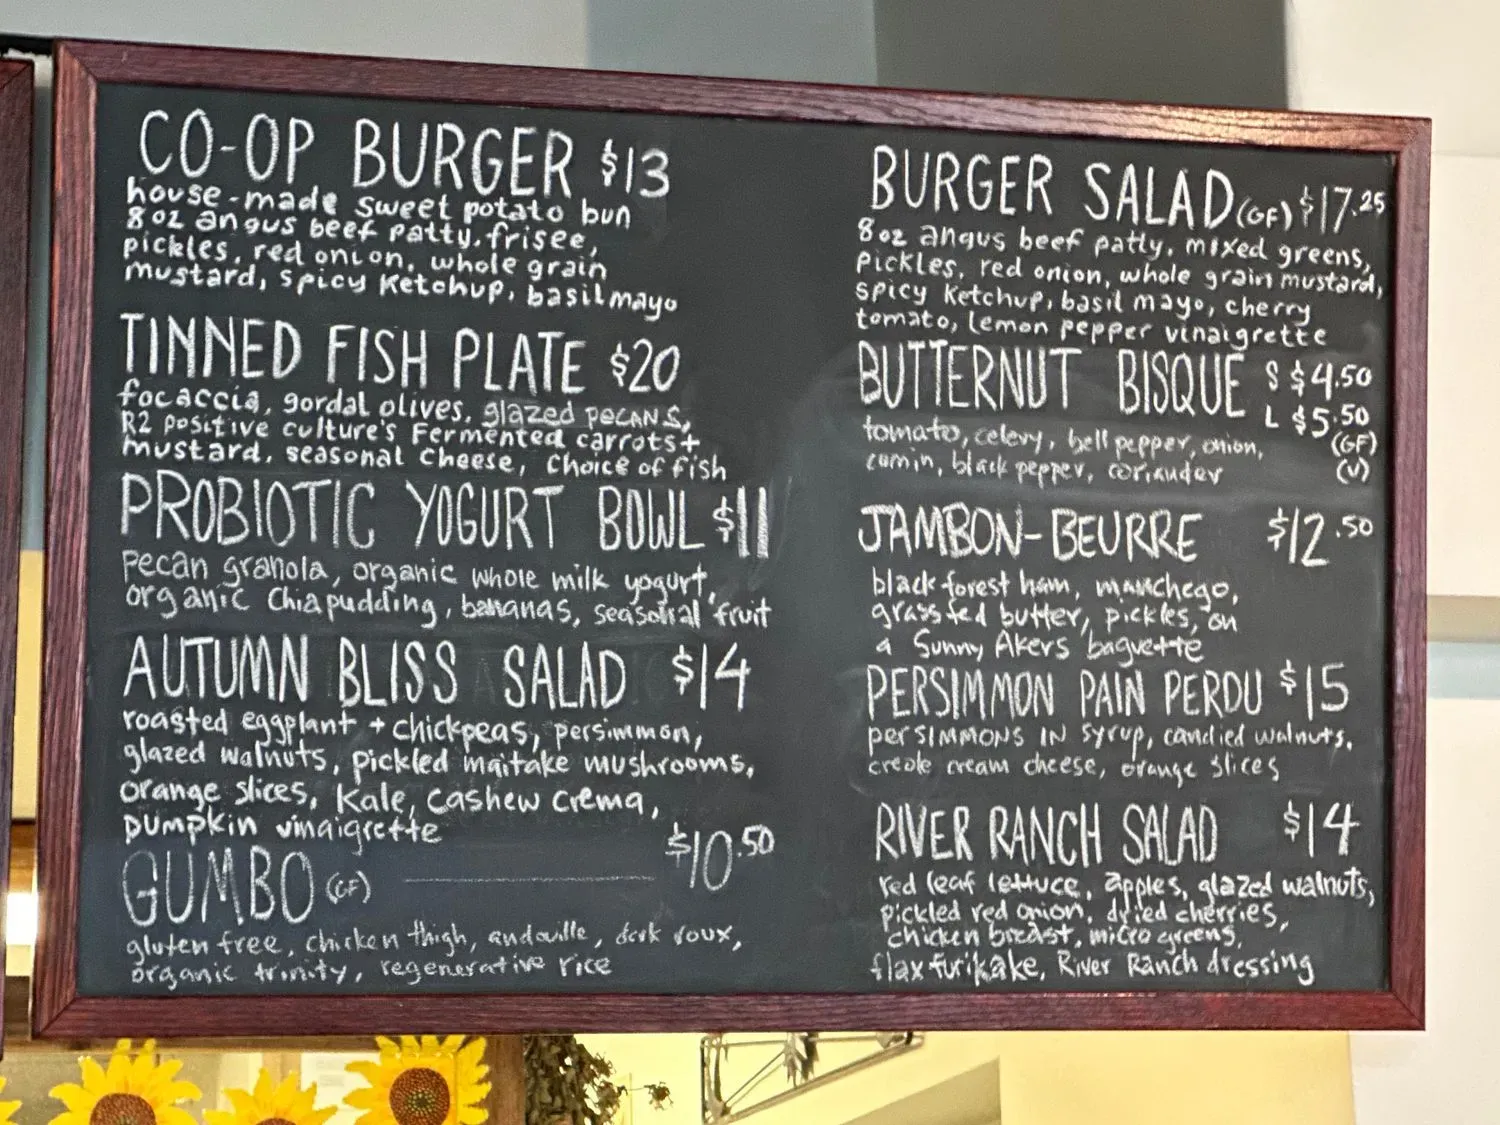 CO-OP BURGER $13
house-made sweet potato bun
8oz angus beef patty, frisee,
pickles, red onion, whole grain
mustard, spicy Ketchup, basil mayo
TINNED FISH PLATE $20
focaccia, gordal olives, glazed pecans,
R2 positive culture's Fermented carrots +
mustard, seasonal cheese, choice of fish
PROBIOTIC YOGURT BOWL $11
pecan granola, organic whole milk yogurt,
organic Chia pudding, bananas, seasonal fruit
AUTUMN BLISS SALAD $14
roasted eggplant + chickpeas, persimmon,
glazed walnuts, pickled maitake mushrooms,
orange slices, Kale, cashew crema,
pumpkin vinaigrette
GUMBO (GF) $10.50
gluten free, chicken thigh, andouille, dark roux,
organic trinity, regenerative rice
BURGER SALAD (GF) $17.25
8oz angus beef patty, mixed greens,
pickles, red onion, whole grain mustard,
spicy Ketchup, basil mayo, cherry
tomato, lemon pepper vinaigrette
BUTTERNUT BISQUE S $4.50
L $5.50
(GF)
(V)
tomato, celery, bell pepper, onion,
cumin, black pepper, coriander
JAMBON-BEURRE $12.50
black forest ham, manchego,
grassfed butter, pickles, on
a Sunny Akers baguette
PERSIMMON PAIN PERDU $15
persimmons in syrup, candied walnuts,
creole cream cheese, orange slices
RIVER RANCH SALAD $14
red leaf lettuce, apples, glazed walnuts,
pickled red onion, dried cherries,
chicken breast, micro greens,
flax furikake, River Ranch dressing